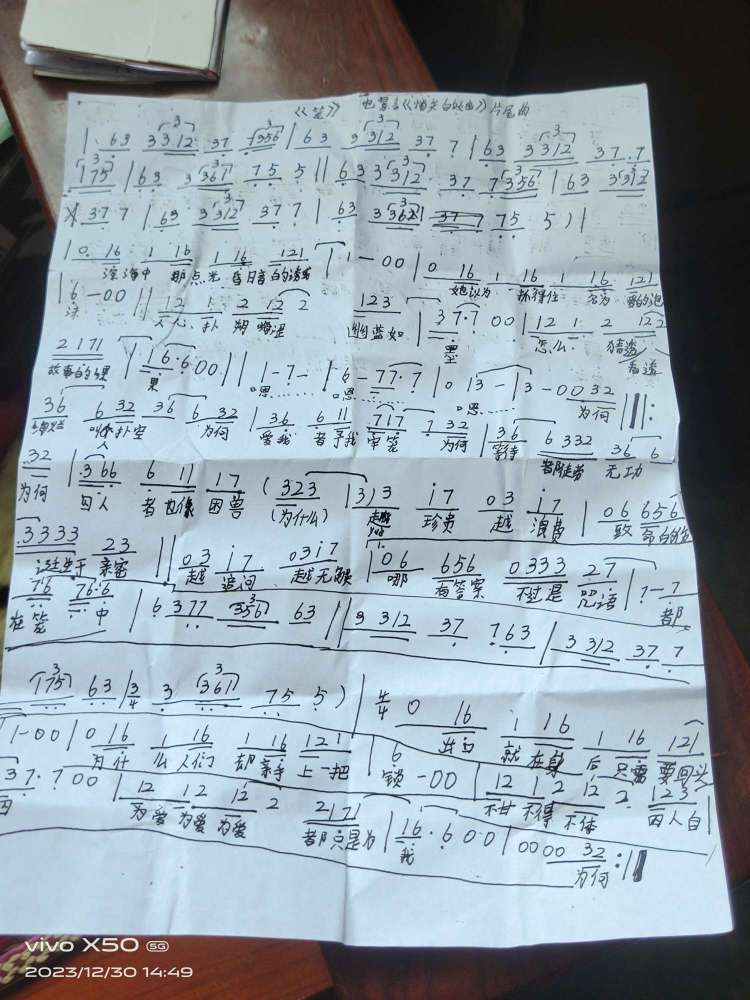 《笼》 电影《消失的她》片尾曲
| 63 3312 37 7356 | 63 3312 37 7 | 63 3312 37.7
175 | 63 3361 75 5 || 633312 37 7356 | 63 3312
37 7 | 63 3312 37 7 | 63 3362 | 75 5 ) |
| 0 16 1 16 1 16 121 | 1-00 | 0 16 1 16 1 16 121
深海中 那点光 她以为 抓得住 名为
| 6-00 || 12 1 2 12 2 123 | 37.7 00 | 12 1 2 122
人心 扑 朔 幽蓝如 墨 怎么 猜透
看透
2171 | 16.600 || 1-7- | 6- 77.7 | 0 13-|3-0032
故事的 果 嗯…… 嗯…… 嗯…… 为何
36 6 32 36 6 32 | 36 6 11 717 7 32 | 36 6 332 36 6
扑空 为何 爱我 者予我 牢笼 为何 等待 者 徒劳 无功
32 | 366 6 11 17 ( 323 |3)3 17 03 17 | 06 656
为何 囚人 者也像 困兽 (为什么) 越 珍贵 越 浪费 致 命的
3333 23 || 03 17 0317 | 06 656 0333 27 | 7-7
亲密 越 追问 越无 哪 有答案 不过是 咒语 都
76 76.6 | 6 377 356 63 || 3 312 37 763 | 3 312 37 7
在笼 中
175 63 | 3/4 3 361 75 5 ) | 4/4 0 16 1 16 1 16 121
出口 就在身 后 只需 要回头
| 1-00 | 0 16 1 16 1 16 121 | 6 -00 | 12 1 2 12 2 123
为什 么人们 却亲手 上一把 锁 不甘 不得 不休 囚人自
37.700 | 12 12 12 2 2171 | 16.600 | 0000 32 :||
囚 为爱 为爱 为爱 都只是为 我 为何
vivo X50 5G
2023/12/30 14:49